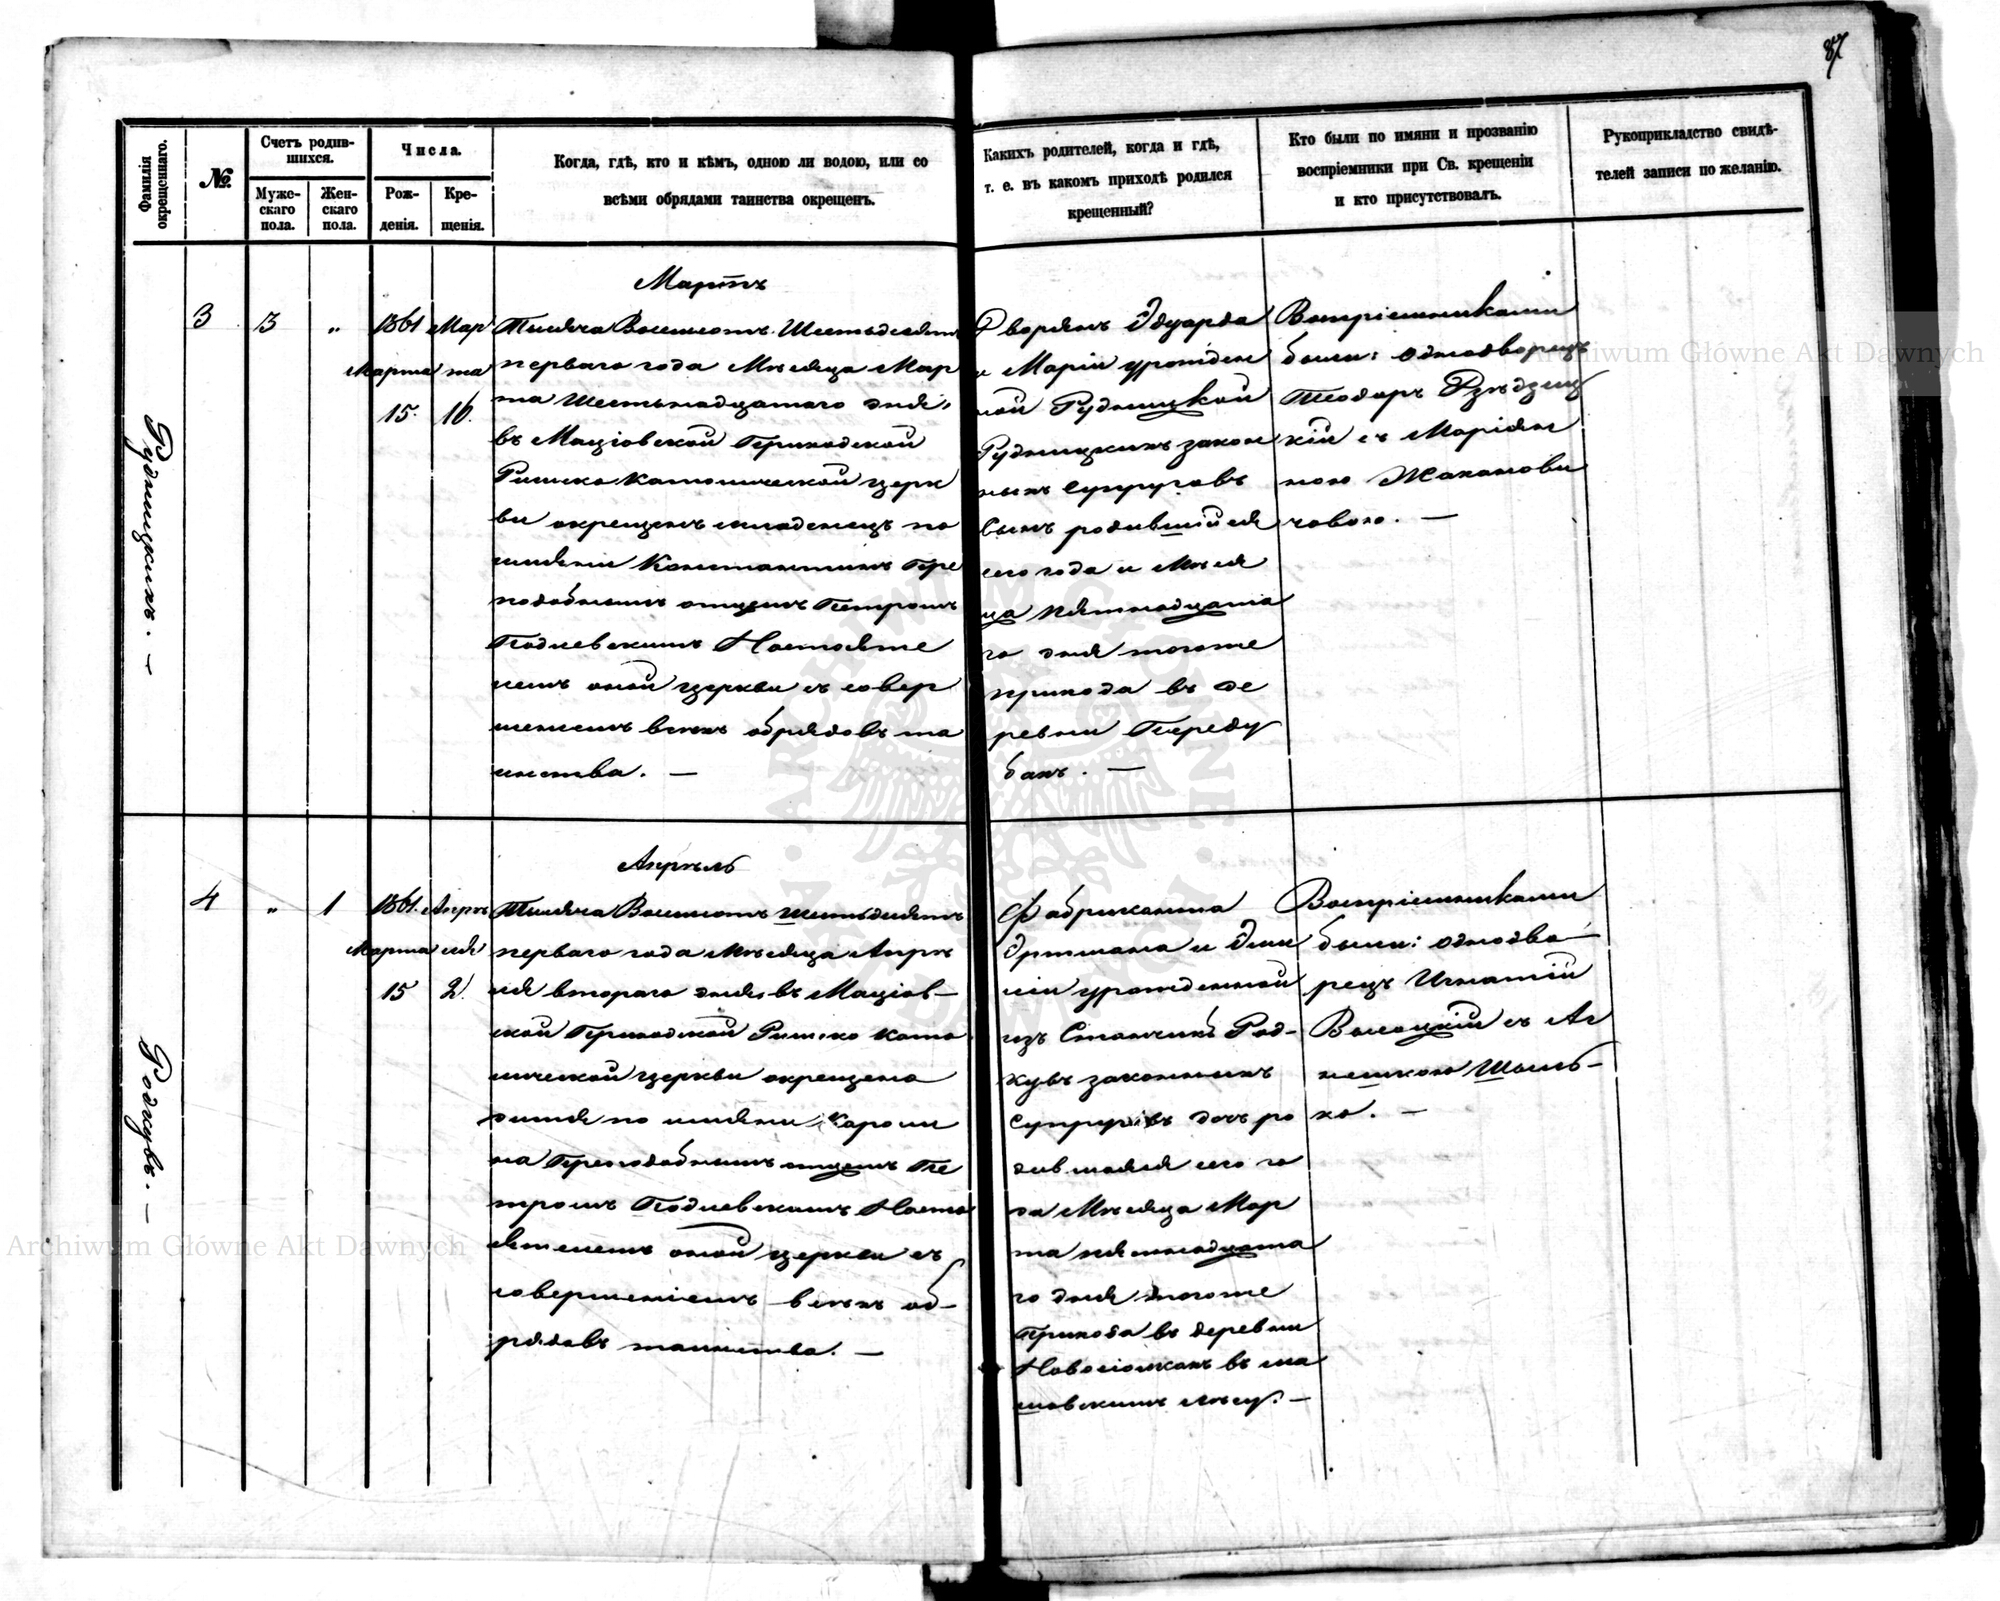 87
Фамилія
окрещеннаго.
№.
Счетъ родив-
шихся.
Муже-
скаго
пола.
Жен-
скаго
пола.
Числа.
Рож-
денія.
Кре-
щенія.
Когда, гдѣ, кто и кѣмъ, одною ли водою, или со
всѣми обрядами таинства окрещенъ.
Какихъ родителей, когда и гдѣ,
т. е. въ какомъ приходѣ родился
крещенный?
Кто были по имяни и прозванію
воспріемники при Св. крещеніи
и кто присутствовалъ.
Рукоприкладство свидѣ-
телей записи по желанію.
Рудницкихъ. —
3
3
"
1861
Марта
15.
Мар
та
16.
Мартъ
Тысяча Восемсотъ Шестьдесятъ
перваго года Мѣсяца Мар
та Шестьнадцатаго дня,
въ Маціовской Приходской
Римско Католической церк
ви окрещенъ младенецъ по
имяни Константинъ Пре
подобнымъ отцемъ Петромъ
Подлевскимъ Настояте
лемъ оной церкви съ совер
шениемъ всѣхъ обрядовъ та
инства. —
Дворянъ Эдуарда
и Маріи урожден
ной Рудницкой
Рудницкихъ закон
ныхъ Супруговъ
сынъ родившійся
сего года и Мѣся
ца пятнадцата
го дня тогоже
прихода въ де
ревни Переду
бахъ. —
Воспріемниками
были: однодворецъ
Теодоръ
кій съ Маріян
ною Жакамови
човою. —
Родкувъ. —
4
"
1
1861.
Марта
15
Апрѣ
ля
2.
Апрѣль
Тысяча Восемсотъ шестьдесятъ
перваго года Мѣсяца Апрѣ
ля втораго дня, въ Маціов-
ской Приходской Римско Като
лической церкви окрещено
дитя по имяни Кароли
на Преподобнымъ отцемъ Пе
тромъ Подлевскимъ Насто
ятелемъ оной церкви съ
совершеніемъ всѣхъ об-
рядовъ таинства. —
Фабриканта
и Эми
ліи урожденной
изъ Род-
кувъ законныхъ
Супруговъ дочь ро
дившаяся сего го
да Мѣсяца Мар
та пятнадцата
го дня тогоже
Прихода въ деревни
Новосіолкахъ въ ма
шовскимъ лѣсу. —
Воспріемниками
были: однодво-
рецъ Игнатій
съ Аг
нешкою
ко. —
Archiwum Główne Akt Dawnych
Archiwum Główne Akt Dawnych
ARCHIWUM GŁÓWNE AKT DAWNYCH